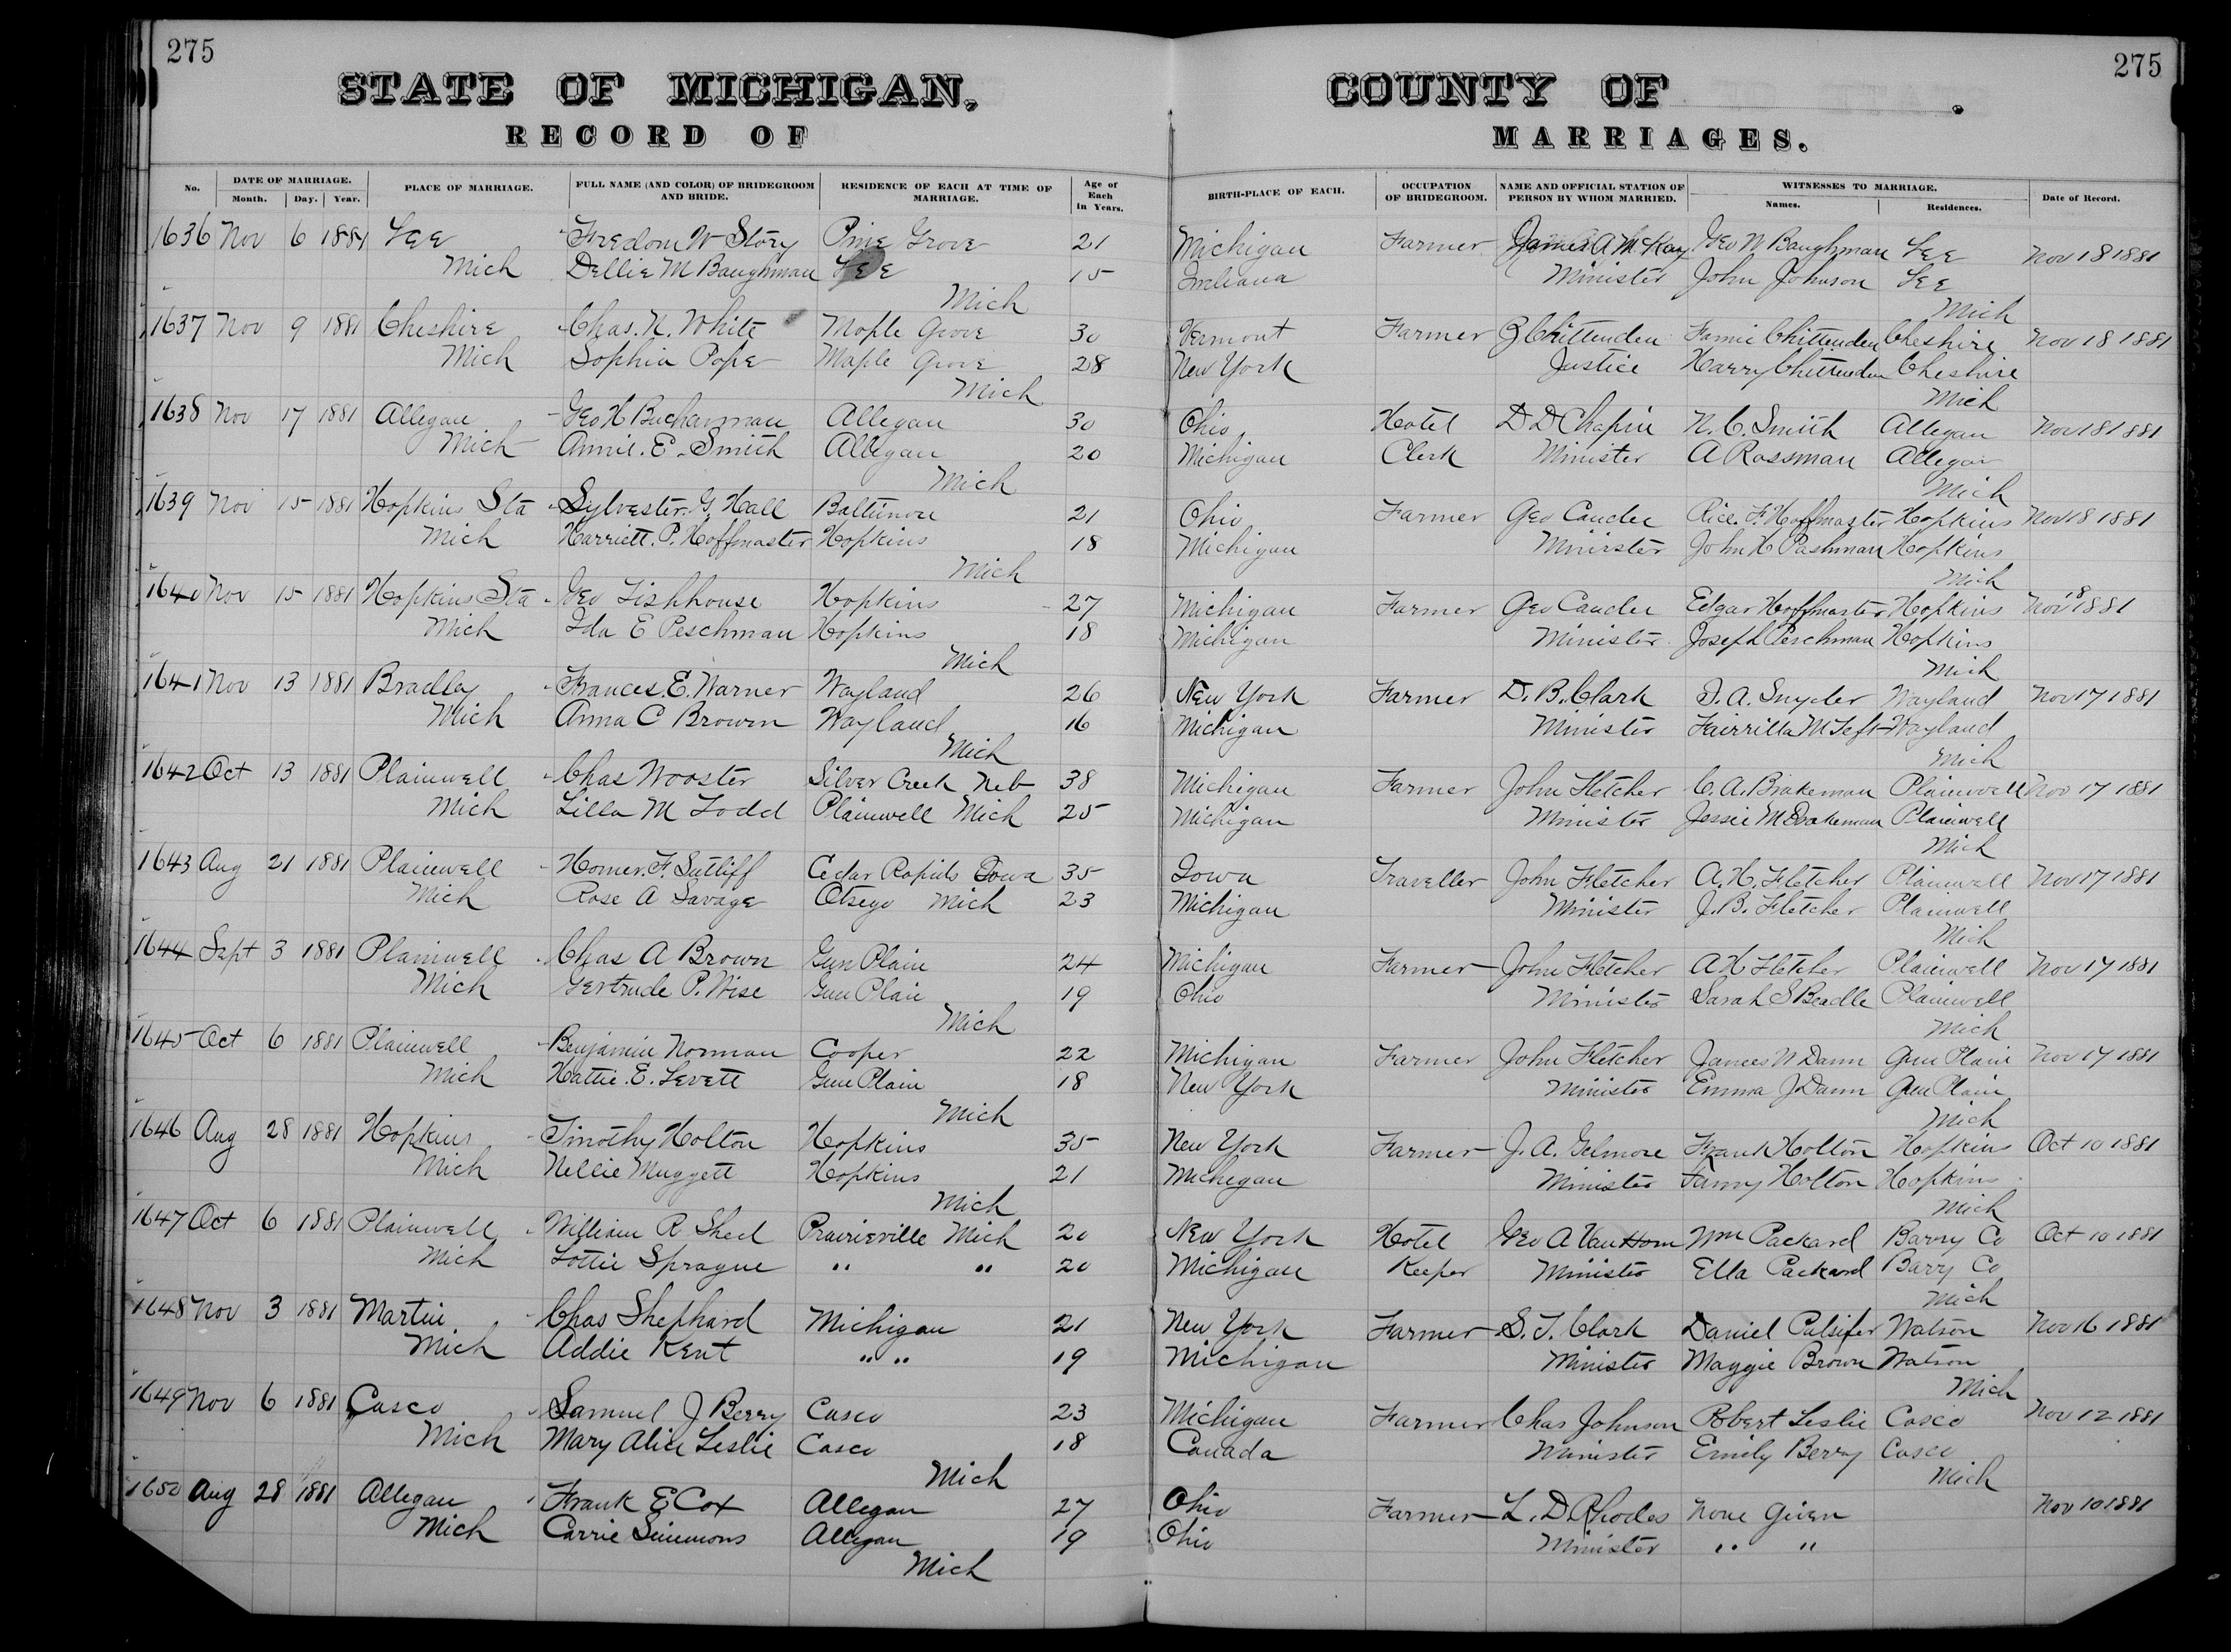 275
275
STATE OF MICHIGAN, COUNTY OF .
RECORD OF MARRIAGES.
No. DATE OF MARRIAGE. Month. Day. Year. PLACE OF MARRIAGE. FULL NAME (AND COLOR) OF BRIDEGROOM AND BRIDE. RESIDENCE OF EACH AT TIME OF MARRIAGE. Age of Each in Years. BIRTH-PLACE OF EACH. OCCUPATION OF BRIDEGROOM. NAME AND OFFICIAL STATION OF PERSON BY WHOM MARRIED. WITNESSES TO MARRIAGE. Names. Residences. Date of Record.
1636 Nov 6 1881 Lee Fredom W Story Pine Grove 21 Michigan Farmer James A McKay Geo W Baughman Lee Nov 18 1881
Mich Dellie M Baughman Lee 15 Indiana Minister John Johnson Lee
Mich Mich
1637 Nov 9 1881 Cheshire Chas. N. White Maple Grove 30 Vermont Farmer Chittenden Fannie Chittenden Cheshire Nov 18 1881
Mich Sophia Pope Maple Grove 28 New York Justice Harry Chittenden Cheshire
Mich Mich
1638 Nov 17 1881 Allegan Geo H Buchanan Allegan 30 Ohio Hotel D D Chapin N. C. Smith Allegan Nov 18 1881
Mich Annie. E. Smith Allegan 20 Michigan Clerk Minister A Rossman Allegan
Mich Mich
1639 Nov 15 1881 Hopkins Sta Sylvester. G. Hall Baltimore 21 Ohio Farmer Geo Candee Rice. F. Hoffmaster Hopkins Nov 18 1881
Mich Harriett. P. Hoffmaster Hopkins 18 Michigan Minister John H Pashman Hopkins
Mich Mich
1640 Nov 15 1881 Hopkins Sta Geo Fishhouse Hopkins 27 Michigan Farmer Geo Candee Edgar Hoffmaster Hopkins Nov 18 1881
Mich Ida E Peschman Hopkins 18 Michigan Minister Joseph Peschman Hopkins
Mich Mich
1641 Nov 13 1881 Bradley Frances. E. Warner Wayland 26 New York Farmer D. B. Clark D. A. Snyder Wayland Nov 17 1881
Mich Anna C Brown Wayland 16 Michigan Minister Fairrilla M Teft Wayland
Mich Mich
1642 Oct 13 1881 Plainwell Chas Wooster Silver Creek Neb 38 Michigan Farmer John Fletcher C. A. Brakeman Plainwell Nov 17 1881
Mich Lilla M Todd Plainwell Mich 25 Michigan Minister Jessie M Brakeman Plainwell
Mich
1643 Aug 21 1881 Plainwell Homer. F. Sutliff Cedar Rapids Iowa 35 Iowa Traveller John Fletcher A. H. Fletcher Plainwell Nov 17 1881
Mich Rose A Savage Otsego Mich 23 Michigan Minister J. B. Fletcher Plainwell
Mich
1644 Sept 3 1881 Plainwell Chas A Brown Gun Plain 24 Michigan Farmer John Fletcher A H Fletcher Plainwell Nov 17 1881
Mich Gertrude P. Wise Gun Plain 19 Ohio Minister Sarah S Beadle Plainwell
Mich Mich
1645 Oct 6 1881 Plainwell Benjamin Norman Cooper 22 Michigan Farmer John Fletcher James W Dann Gun Plain Nov 17 1881
Mich Hattie. E. Levett Gun Plain 18 New York Minister Emma J Dann Gun Plain
Mich Mich
1646 Aug 28 1881 Hopkins Timothy Holton Hopkins 35 New York Farmer J. A. Gelmore Frank Holton Hopkins Oct 10 1881
Mich Nellie Muggett Hopkins 21 Michigan Minister Fanny Holton Hopkins
Mich Mich
1647 Oct 6 1881 Plainwell William R Shed Prairieville Mich 20 New York Hotel Geo A Van Horn Wm Packard Barry Co Oct 10 1881
Mich Lottie Sprague " " 20 Michigan Keeper Minister Ella Packard Barry Co
Mich
1648 Nov 3 1881 Martin Chas Shephard Michigan 21 New York Farmer S. T. Clark Daniel Pulsifer Watson Nov 16 1881
Mich Addie Kent " " 19 Michigan Minister Maggie Brown Watson
Mich
1649 Nov 6 1881 Casco Samuel J Berry Casco 23 Michigan Farmer Chas Johnson Robert Leslie Casco Nov 12 1881
Mich Mary Alice Leslie Casco 18 Canada Minister Emily Berry Casco
Mich Mich
1650 Aug 28 1881 Allegan Frank E Cox Allegan 27 Ohio Farmer L. D. Rhodes None Given Nov 10 1881
Mich Carrie Simmons Allegan 19 Ohio Minister " "
Mich